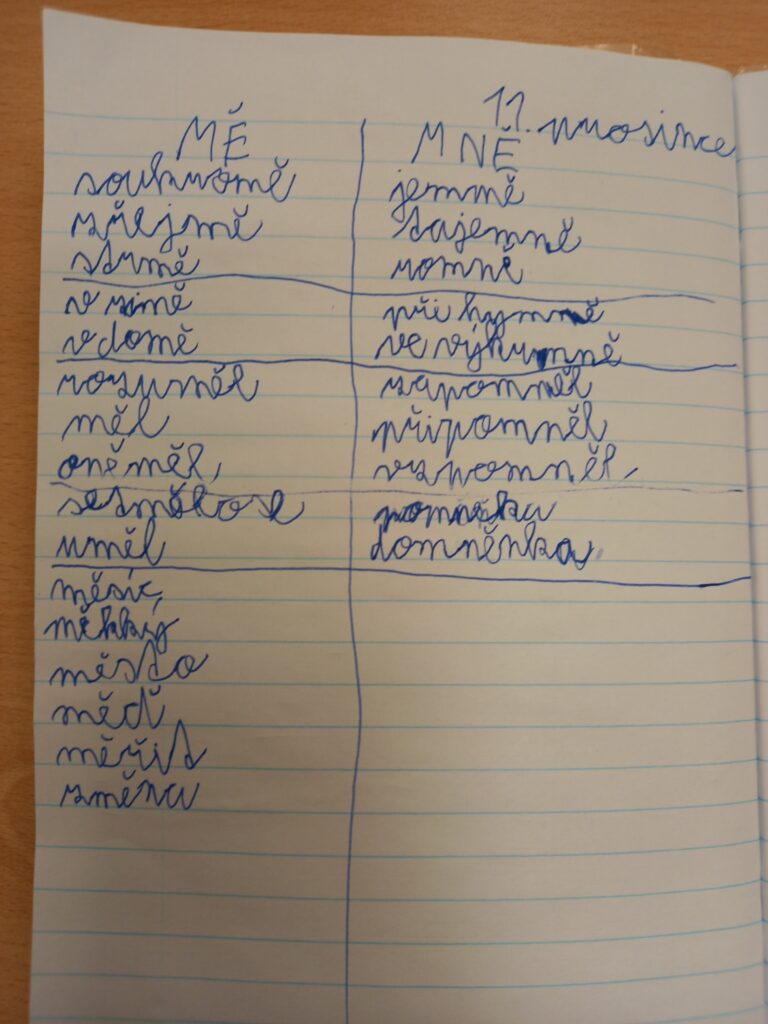 11. prosince
MĚ MNĚ
soukromě jemně
zřejmě tajemně
strmě
v zimě při hymně
v domě ve
rozuměl zapomněl
měl připomněl
oněměl, vzpomněl,
setmělo se pomněnka
uměl domněnka
měsíc,
měkký
město
měď
měřit
změna